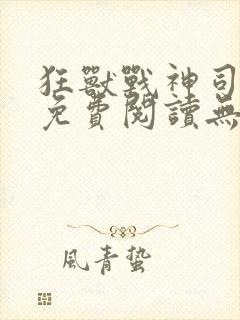 狂獸戰神司
免費閱讀無
風青蟄